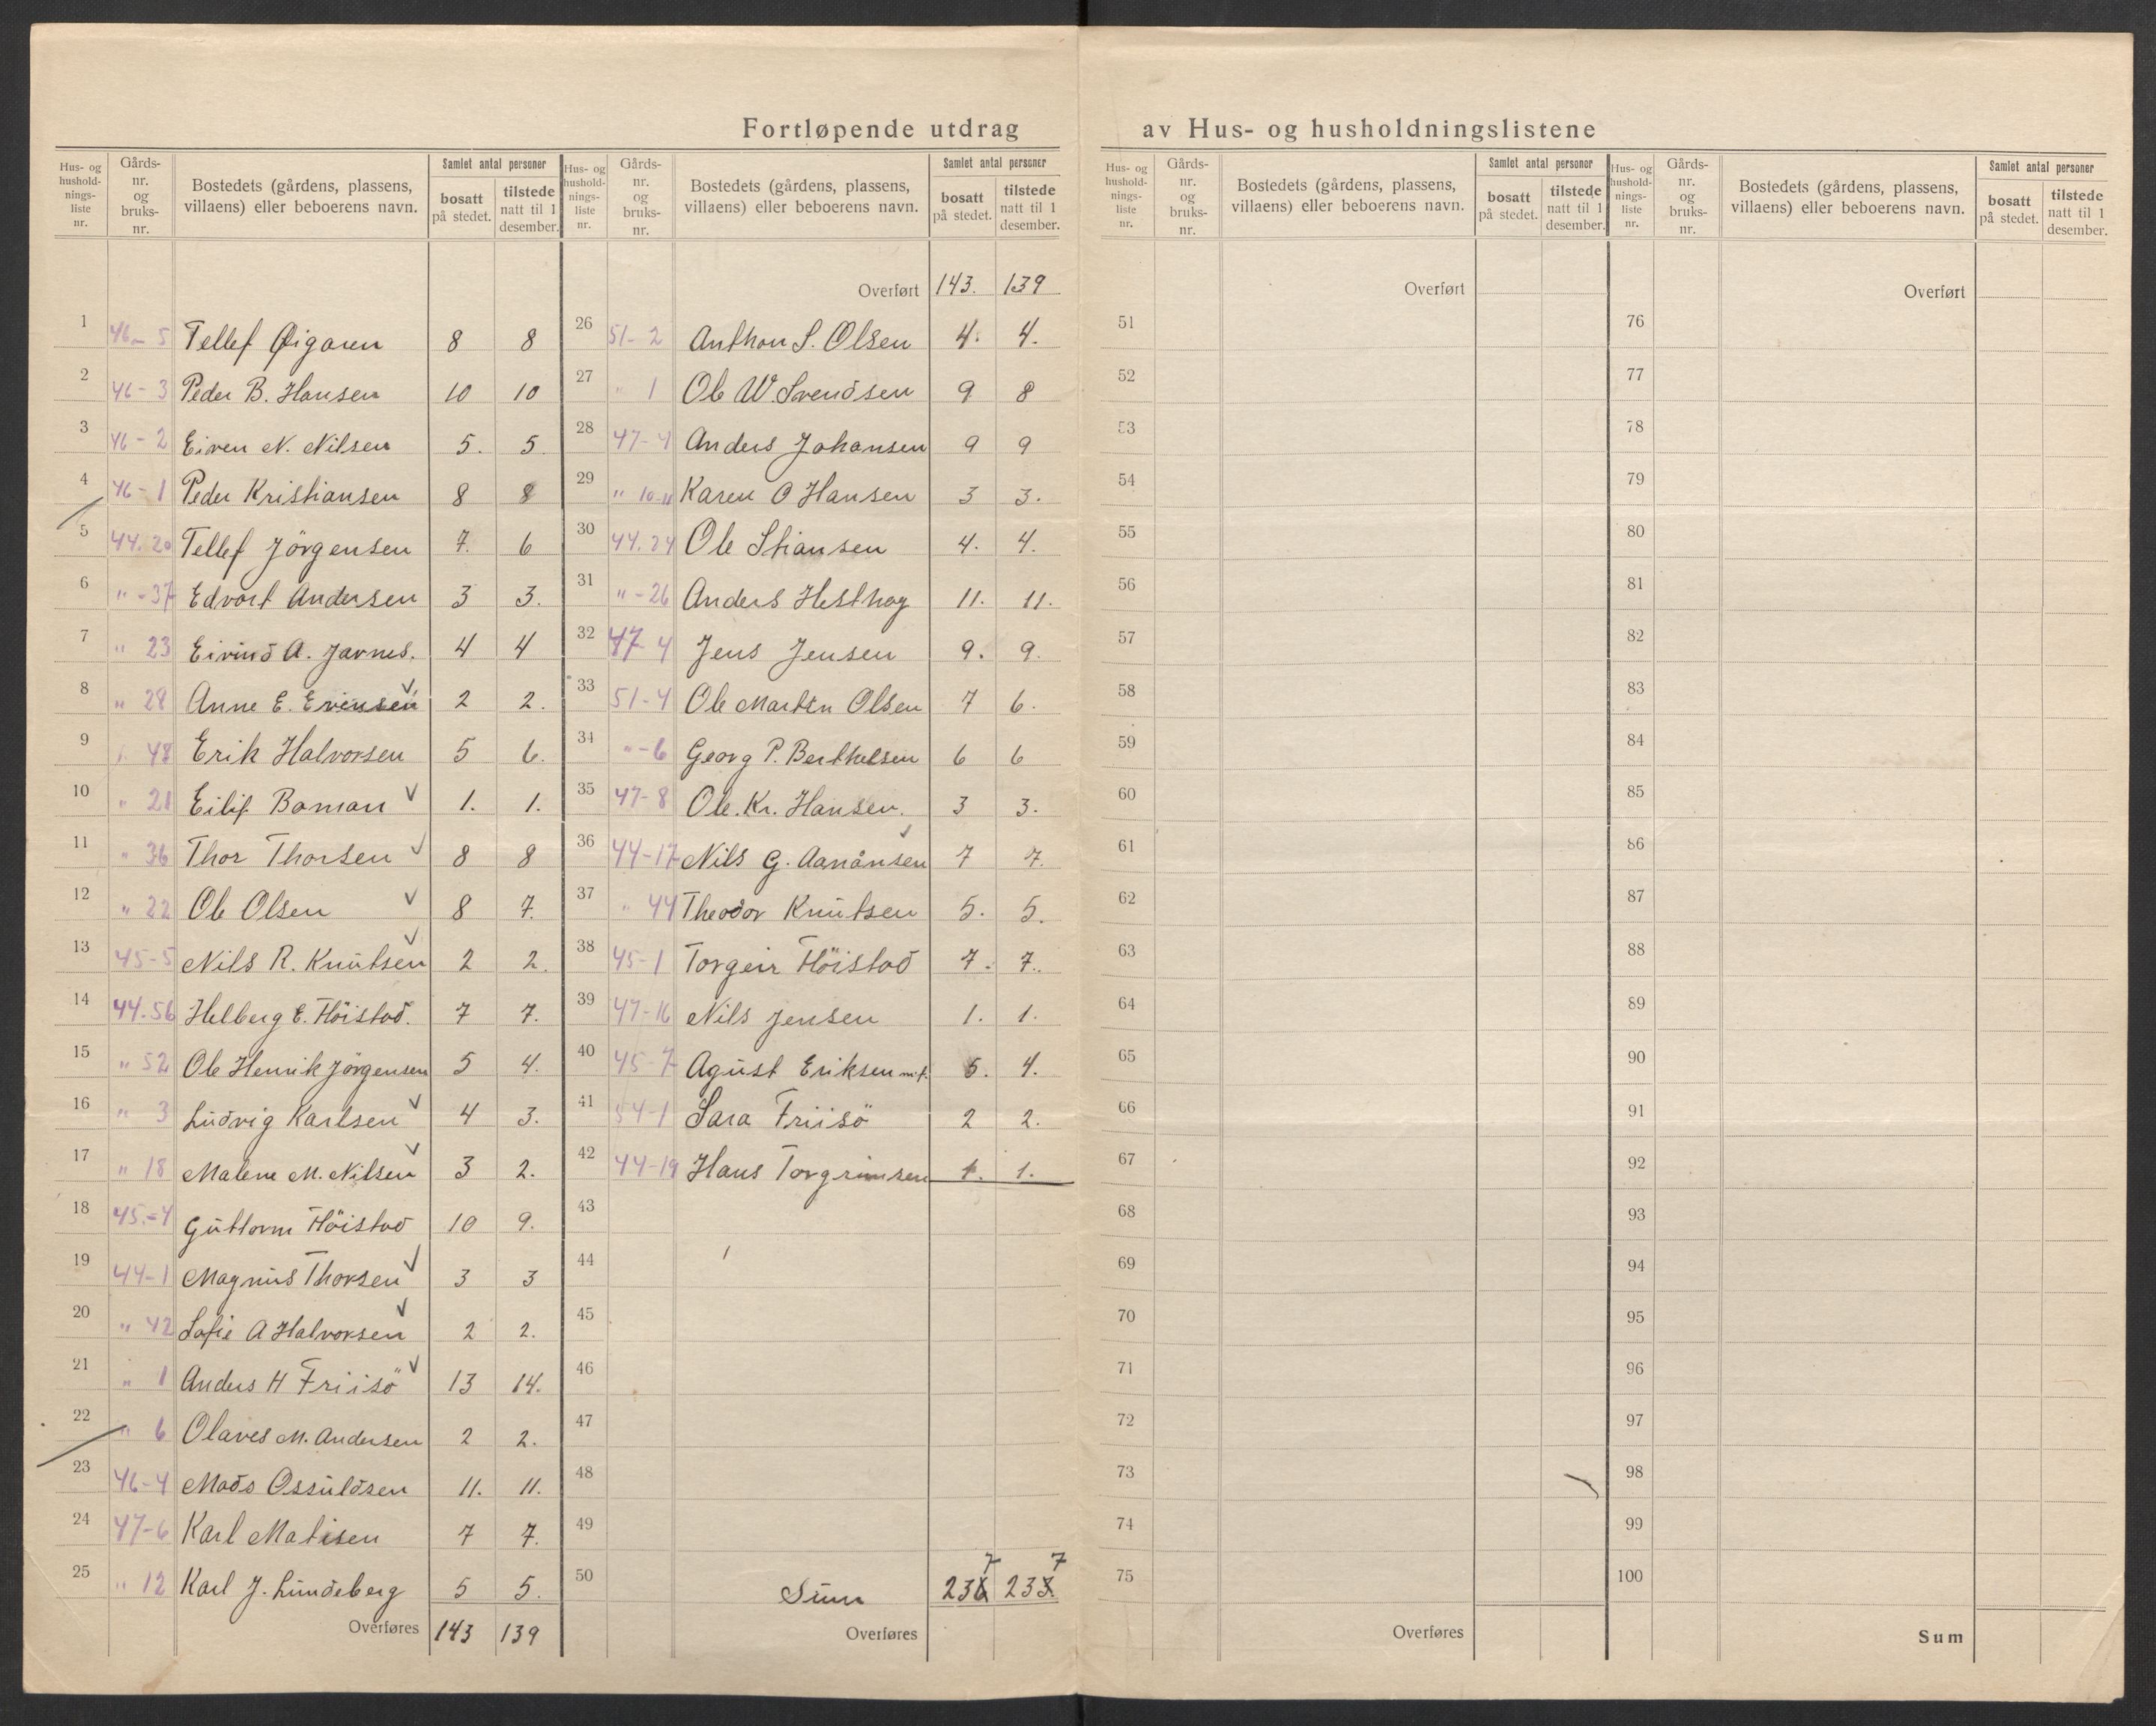 Fortløpende utdrag av Hus- og husholdningslistene
Hus- og hushold-nings-liste nr. Gårds-nr. og bruks-nr. Bostedets (gårdens, plassens, villaens) eller beboerens navn. Samlet antal personer bosatt på stedet. tilstede natt til 1 desember.
1 46-5 Tellef Øigaren 8 8
2 46-3 Peder B. Hansen 10 10
3 46-2 Eiven N. Nilsen 5. 5
4 46-1 Peder Kristiansen 8 8
5 44.20 Tellef Jörgensen 7. 6
6 " -37 Edvart Andersen 3 3.
7 " 23 Eivind A. Javnes. 4 4
8 " 28 Anne E. Evensen 2 2.
9 " 48 Erik Halvorsen 5 6.
10 " 21 Eilif Boman 1. 1.
11 " 36 Thor Thorsen 8 8
12 " 22 Ole Olsen 8 7.
13 45-5 Nils R. Knutsen 2 2.
14 44.56 Helberg E. Höistad. 7 7.
15 " 52 Ole Henrik Jörgensen 5 4.
16 " 3 Ludvig Karlsen 4 3.
17 " 18 Malene M. Nilsen 3 2.
18 45-4 Guttorm Höistad 10 9.
19 44-1 Magnus Thorsen 3 3
20 " 42 Sofie A Halvorsen 2 2.
21 " 1 Anders H Friisö 13 14.
22 " 6 Olaves M. Andersen 2 2.
23 46-4 Mads Ossuldsen 11. 11.
24 47-6 Karl Matisen 7 7.
25 " 12 Karl J. Lundeberg 5 5.
Overføres 143 139
Hus- og hushold-nings-liste nr. Gårds-nr. og bruks-nr. Bostedets (gårdens, plassens, villaens) eller beboerens navn. Samlet antal personer bosatt på stedet. tilstede natt til 1 desember.
Overført 143. 139
26 51-2 Anthon S. Olsen 4. 4.
27 " 1 Ole W. Svendsen 9 8
28 47-4 Anders Johansen 9 9
29 " 10-11 Karen O Hansen 3 3.
30 44.24 Ole Stiansen 4. 4.
31 " -26 Anders Hesthag 11. 11.
32 47-4 Jens Jensen 9. 9.
33 51-4 Ole Martin Olsen 7 6.
34 " -6 Georg P. Berthelsen 6 6
35 47-8 Ole. Kr. Hansen. 3 3.
36 44-17 Nils G. Aanånsen 7 7.
37 " 44 Theodor Knutsen 5. 5.
38 45-1 Torgeir Höistad 7. 7.
39 47-16 Nils Jensen 1. 1.
40 45-7 Agust Eriksen m.f. 5. 4.
41 54-1 Sara Friisö 2 2.
42 44-19 Hans Torgrimsen 1. 1.
43
44
45
46
47
48
49
7 7
50 Sum 236 233.
Overføres
Hus- og hushold-nings-liste nr. Gårds-nr. og bruks-nr. Bostedets (gårdens, plassens, villaens) eller beboerens navn. Samlet antal personer bosatt på stedet. tilstede natt til 1 desember.
Overført
51
52
53
54
55
56
57
58
59
60
61
62
63
64
65
66
67
68
69
70
71
72
73
74
75
Overføres
Hus- og hushold-nings-liste nr. Gårds-nr. og bruks-nr. Bostedets (gårdens, plassens, villaens) eller beboerens navn. Samlet antal personer bosatt på stedet. tilstede natt til 1 desember.
Overført
76
77
78
79
80
81
82
83
84
85
86
87
88
89
90
91
92
93
94
95
96
97
98
99
100
Sum